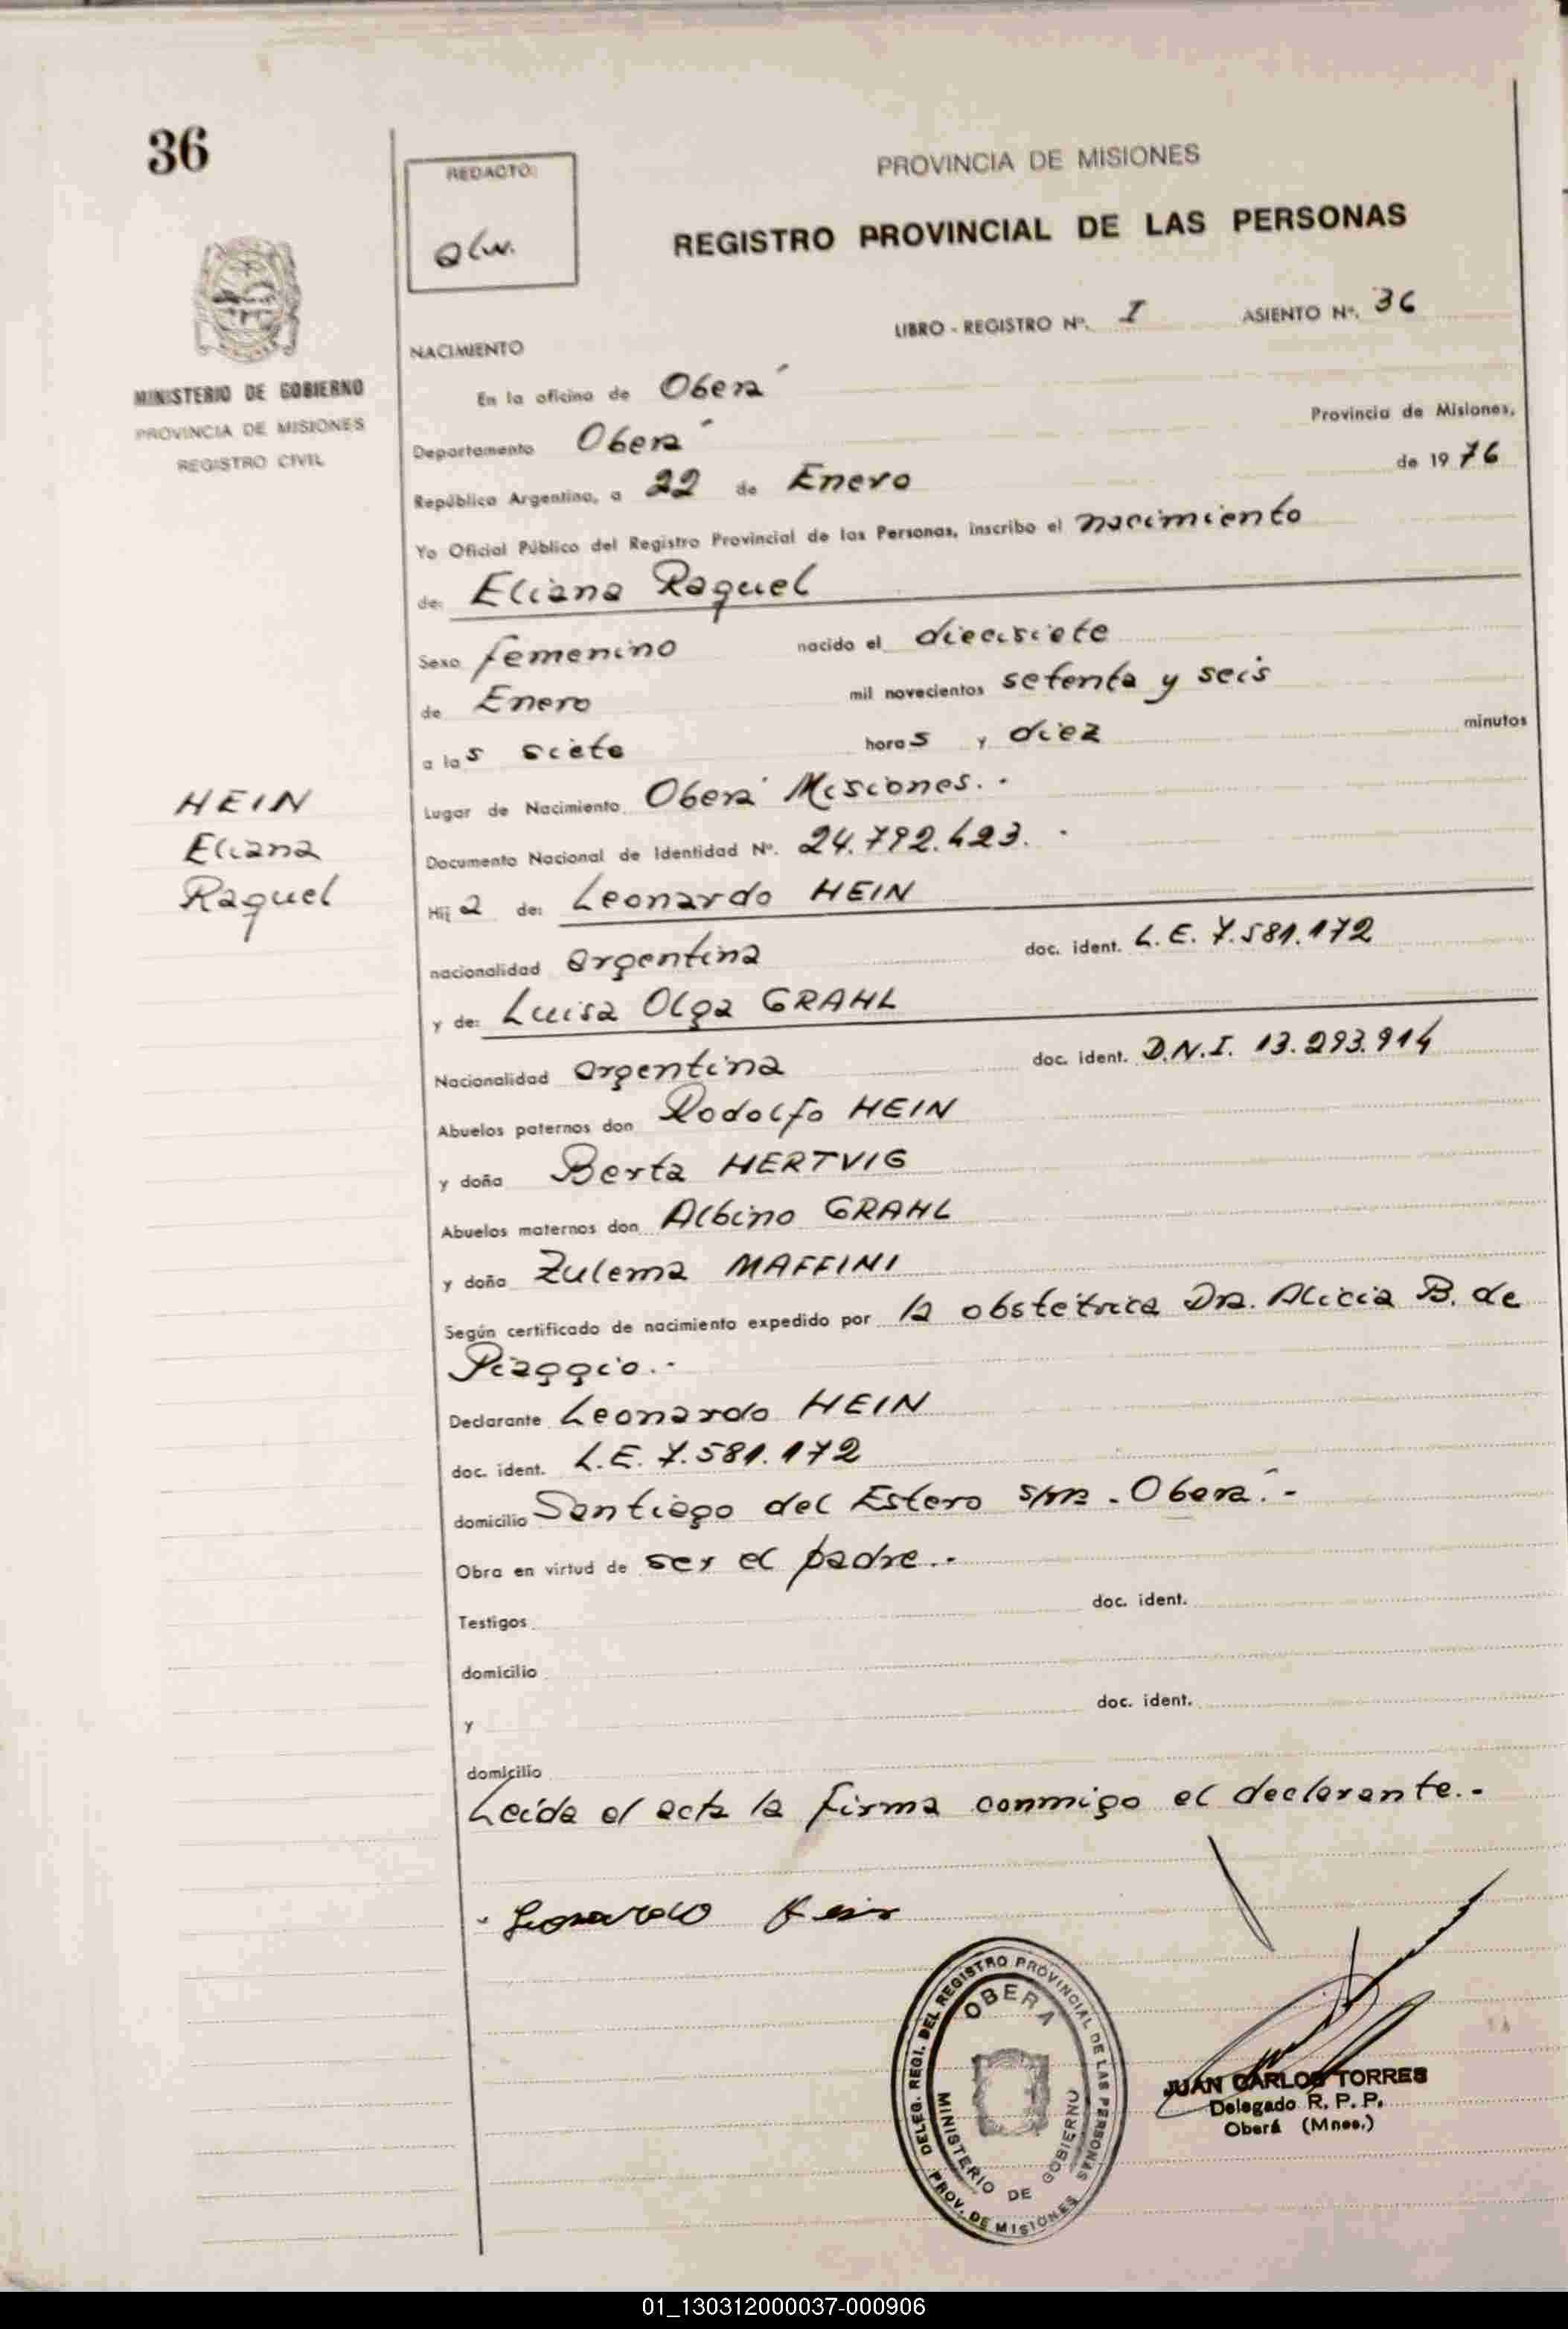 36
REDACTO:
alw.
PROVINCIA DE MISIONES
REGISTRO PROVINCIAL DE LAS PERSONAS
LIBRO - REGISTRO Nº. I ASIENTO Nº. 36
MINISTERIO DE GOBIERNO
PROVINCIA DE MISIONES
REGISTRO CIVIL
NACIMIENTO
En la oficina de Oberá
Departamento Oberá Provincia de Misiones,
República Argentina, a 22 de Enero de 1976
Yo Oficial Público del Registro Provincial de las Personas, inscribo el nacimiento
de: Eliana Raquel
Sexo femenino nacido el diecisiete
de Enero mil novecientos setenta y seis
a las siete horas y diez minutos
HEIN
Eliana
Raquel
Lugar de Nacimiento Oberá Misiones.-
Documento Nacional de Identidad Nº. 24.792.423.-
Hija de: Leonardo HEIN
nacionalidad argentina doc. ident. L.E. 7.581.172
y de: Luisa Olga GRAHL
Nacionalidad argentina doc. ident. D.N.I. 13.293.914
Abuelos paternos don Rodolfo HEIN
y doña Berta HERTVIG
Abuelos maternos don Albino GRAHL
y doña Zulema MAFFINI
Según certificado de nacimiento expedido por la obstétrica Dra. Alicia B. de
Piaggio.-
Declarante Leonardo HEIN
doc. ident. L.E. 7.581.172
domicilio Santiago del Estero s/n - Oberá.-
Obra en virtud de ser el padre.-
Testigos doc. ident.
domicilio
y doc. ident.
domicilio
Leída el acta la firma conmigo el declarante.-
Leonardo Hein
DELEG. REGI. DEL REGISTRO PROVINCIAL DE LAS PERSONAS
OBERA
MINISTERIO DE GOBIERNO
PROV. DE MISIONES
JUAN CARLOS TORRES
Delegado R. P. P.
Oberá (Mnes.)
01_130312000037-000906